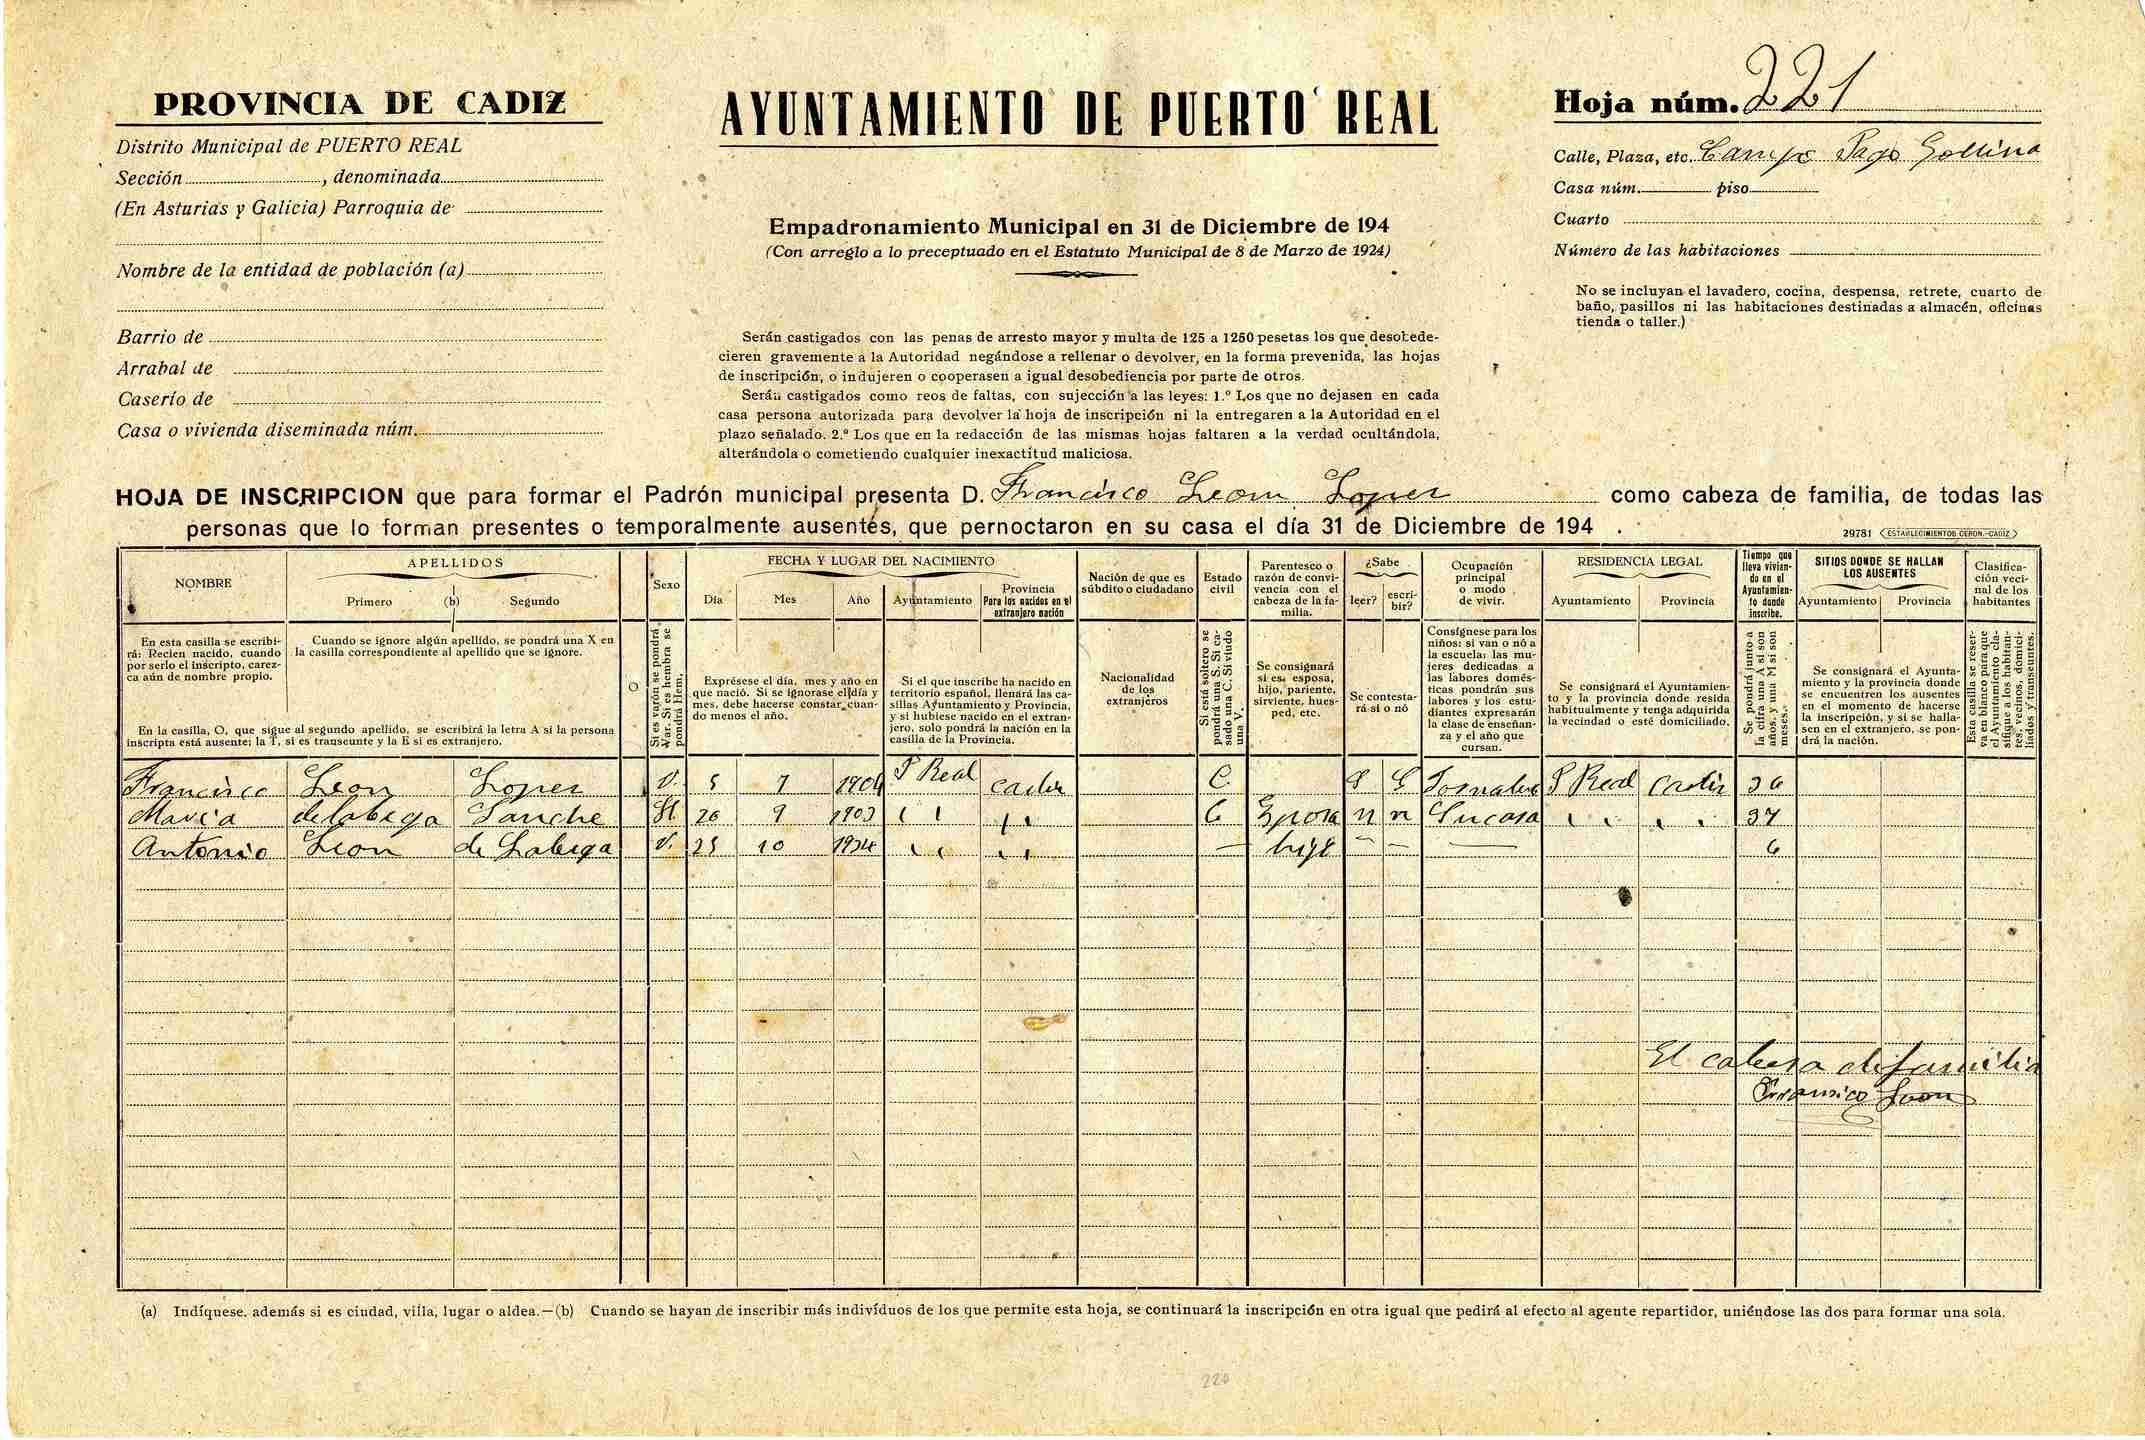 PROVINCIA DE CADIZ
Distrito Municipal de PUERTO REAL
Sección , denominada
(En Asturias y Galicia) Parroquia de
Nombre de la entidad de población (a)
Barrio de
Arrabal de
Caserío de
Casa o vivienda diseminada núm.
AYUNTAMIENTO DE PUERTO REAL
Empadronamiento Municipal en 31 de Diciembre de 194
(Con arreglo a lo preceptuado en el Estatuto Municipal de 8 de Marzo de 1924)
Serán castigados con las penas de arresto mayor y multa de 125 a 1250 pesetas los que desobede-
cieren gravemente a la Autoridad negándose a rellenar o devolver, en la forma prevenida, las hojas
de inscripción, o indujeren o cooperasen a igual desobediencia por parte de otros.
Serán castigados como reos de faltas, con sujección a las leyes: 1.º Los que no dejasen en cada
casa persona autorizada para devolver la hoja de inscripción ni la entregaren a la Autoridad en el
plazo señalado. 2.º Los que en la redacción de las mismas hojas faltaren a la verdad ocultándola,
alterándola o cometiendo cualquier inexactitud maliciosa.
Hoja núm. 221
Calle, Plaza, etc. Campo Pago
Casa núm. piso
Cuarto
Número de las habitaciones
No se incluyan el lavadero, cocina, despensa, retrete, cuarto de
baño, pasillos ni las habitaciones destinadas a almacén, oficinas
tienda o taller.)
HOJA DE INSCRIPCION que para formar el Padrón municipal presenta D. Francisco Leon Lopez como cabeza de familia, de todas las
personas que lo forman presentes o temporalmente ausentes, que pernoctaron en su casa el día 31 de Diciembre de 194 .
29781 ESTABLECIMIENTOS CERON.-CADIZ
NOMBRE
APELLIDOS
Primero (b) Segundo
Sexo
FECHA Y LUGAR DEL NACIMIENTO
Día Mes Año Ayuntamiento
Provincia
Para los nacidos en el
extranjero nación
Nación de que es
súbdito o ciudadano
Estado
civil
Parentesco o
razón de convi-
vencia con el
cabeza de la fa-
milia.
¿Sabe
leer? escri-
bir?
Ocupación
principal
o modo
de vivir.
RESIDENCIA LEGAL
Ayuntamiento Provincia
Tiempo que
lleva vivien-
do en el
Ayuntamien-
to donde
inscribe.
SITIOS DONDE SE HALLAN
LOS AUSENTES
Ayuntamiento Provincia
Clasifica-
ción veci-
nal de los
habitantes
En esta casilla se escribi-
rá: Recien nacido, cuando
por serlo el inscripto, carez-
ca aún de nombre propio.
Cuando se ignore algún apellido, se pondrá una X en
la casilla correspondiente al apellido que se ignore.
En la casilla, O, que sigue al segundo apellido, se escribirá la letra A si la persona
inscripta está ausente; la T, si es transeunte y la E si es extranjero.
O
Si es varón se pondrá
Var. Si es hembra se
pondrá Hem,
Exprésese el día, mes y año en
que nació. Si se ignorase el día y
mes, debe hacerse constar cuan-
do menos el año.
Si el que inscribe ha nacido en
territorio español, llenará las ca-
sillas Ayuntamiento y Provincia,
y si hubiese nacido en el extran-
jero, solo pondrá la nación en la
casilla de la Provincia.
Nacionalidad
de los
extranjeros
Si está soltero se
pondrá una S. Si ca-
sado una C. Si viudo
una V.
Se consignará
si es: esposa,
hijo, pariente,
sirviente, hues-
ped, etc.
Se contesta-
rá si o nó
Consígnese para los
niños: si van o nó a
la escuela: las mu-
jeres dedicadas a
las labores domés-
ticas pondrán sus
labores y los estu-
diantes expresarán
la clase de enseñan-
za y el año que
cursan.
Se consignará el Ayuntamien-
to y la provincia donde resida
habitualmente y tenga adquirida
la vecindad o esté domiciliado.
Se pondrá junto a
la cifra una A si son
años, y una M si son
meses.
Se consignará el Ayunta-
miento y la provincia donde
se encuentren los ausentes
en el momento de hacerse
la inscripción, y si se halla-
sen en el extranjero, se pon-
drá la nación.
Esta casilla se reser-
va en blanco para que
el Ayuntamiento cla-
sifique a los habitan-
tes, vecinos, domici-
liados y transeuntes.
Francisco Leon Lopez V. 5 7 1904 P Real Cadiz C. S S P Real Cadiz 36
Maria de la bega Sanche H 20 9 1903 " " " " C Eposa n n Su casa " " " " 37
Antonio Leon de Labega V. 25 10 1934 " " " " — hijo — — — 6
El cabesa de familia
Fransico Leon
(a) Indíquese. además si es ciudad, villa, lugar o aldea.—(b) Cuando se hayan de inscribir más individuos de los que permite esta hoja, se continuará la inscripción en otra igual que pedirá al efecto al agente repartidor, uniéndose las dos para formar una sola.
220